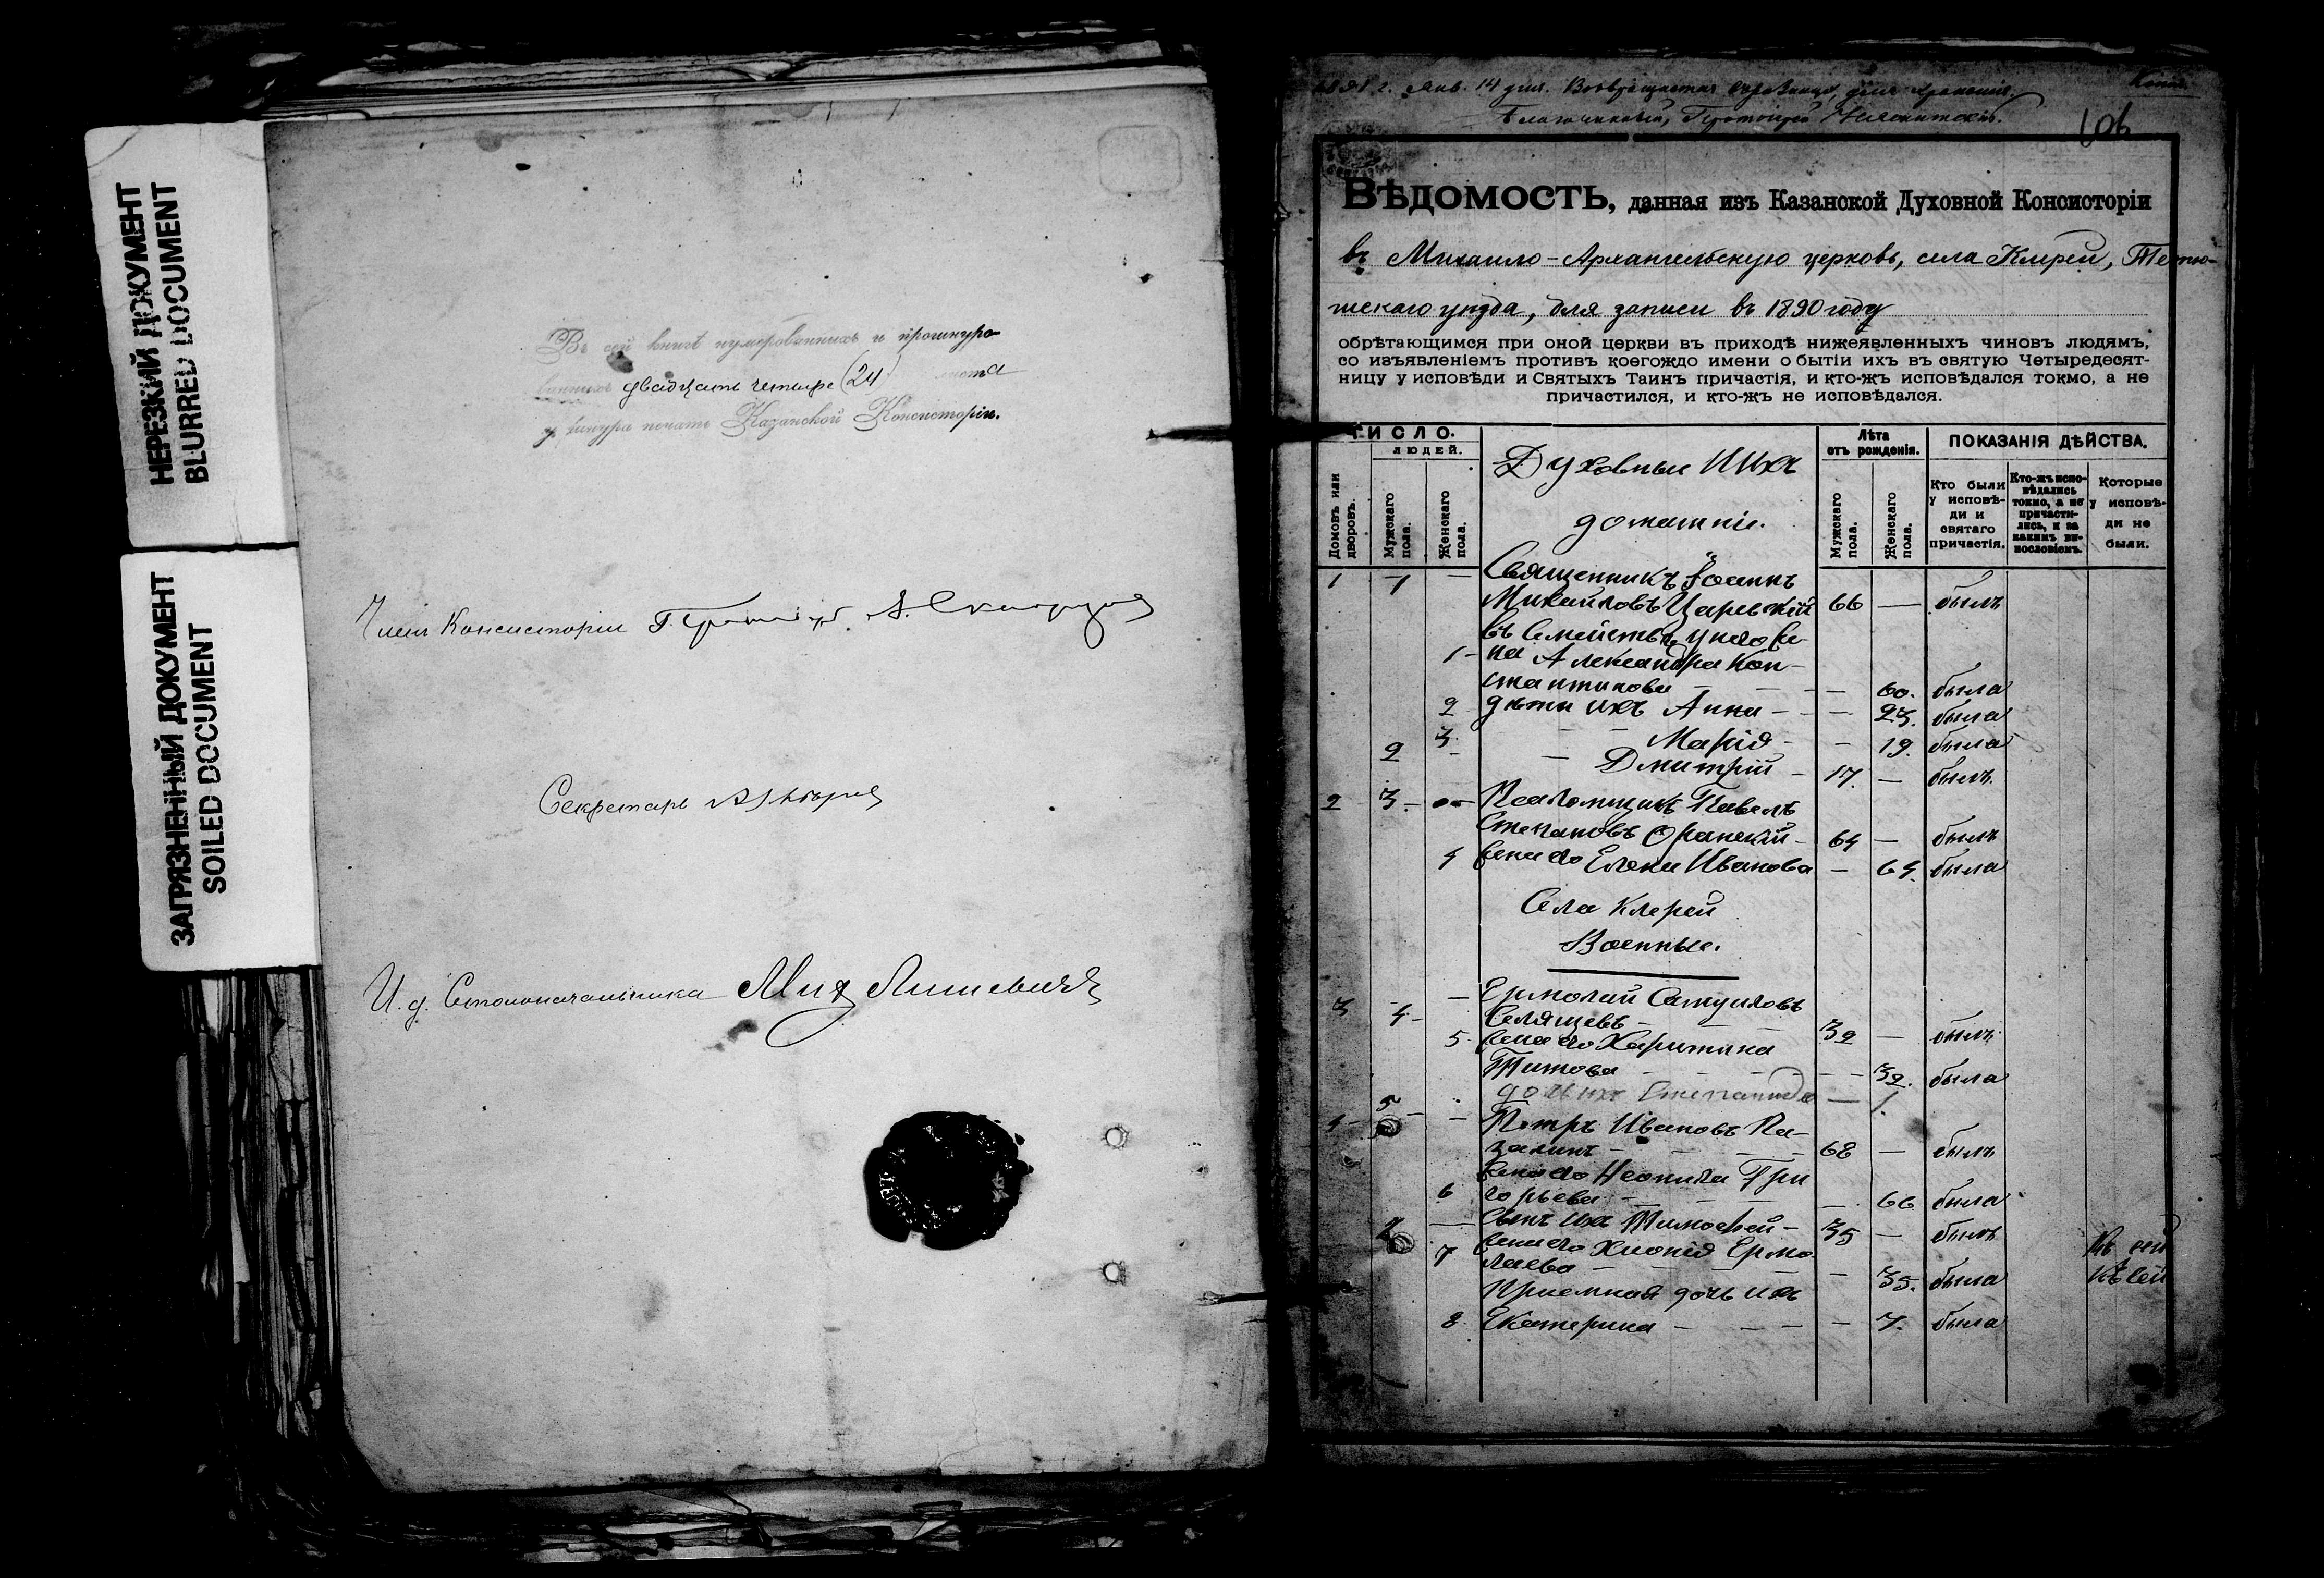 НЕРЕЗКИЙ ДОКУМЕНТ
BLURRED DOCUMENT
ЗАГРЯЗНЕННЫЙ ДОКУМЕНТ
SOILED DOCUMENT
Въ сей книгѣ нумерованныхъ и прошнуро-
ванныхъ двадцать четыре (24) листа
у шнура печать Казанской Консисторіи.
Членъ Консисторіи
Секретарь
И. д. Столоначальника
1891 г. Янв. 14 дня. Возвращается
Благочинный, Протоіерей
Копія
606
Вѣдомость, данная изъ Казанской Духовной Консисторіи
въ Михаило-Архангельскую церковь, села Клерей, Тетю-
шскаго уѣзда, для записи въ 1890 году
обрѣтающимся при оной церкви въ приходѣ нижеявленныхъ чиновъ людямъ,
со изъявленіемъ противъ коегождо имени о бытіи ихъ въ святую Четыредесят-
ницу у исповѣди и Святыхъ Таинъ причастія, и кто-жъ исповѣдался токмо, а не
причастился, и кто-жъ не исповѣдался.
ЧИСЛО.
ЛЮДЕЙ.
Домовъ или дворовъ.
Мужскаго пола.
Женскаго пола.
Духовные и ихъ
домашніе.
Лѣта
отъ рожденія.
Мужскаго пола.
Женскаго пола.
ПОКАЗАНІЯ ДѢЙСТВА.
Кто были
у исповѣ-
ди и
святаго
причастія.
Кто-жъ испо-
вѣдались
токмо, а не
причасти-
лись, и за
какимъ ви-
нословіемъ.
Которые
у исповѣ-
ди не
были.
1 1 — Священникъ Іоаннъ
Михайловъ Царевскій 66 — былъ
въ семействѣ у него же-
1 на Александра Кон-
стантинова — 60. была
2 дѣти ихъ Анна — — 23. была
3 Марія — — 19. была
2 — Дмитрій — 17. — былъ
2 3 — Псаломщикъ Павелъ
Степановъ Оранскій — 64 — былъ
4 жена его Елена Иванова — 64. была
Села Клерей
Военные.
3 4 — Ермолай Самуиловъ
Селящевъ — 32 — былъ
5 жена его Харитина
Титова — — 32. была
дочь ихъ Степанида — 1.
4 5 — Петръ Ивановъ Ка-
залинъ — 68 — былъ
жена его Неонила Гри
6 горьева — — 66 была
— сынъ ихъ Тимофей — 35 — былъ
7 жена его Хионія Ермо
лаева — — 35. была
Пріемная дочь ихъ
8 Екатерина — — 7. была